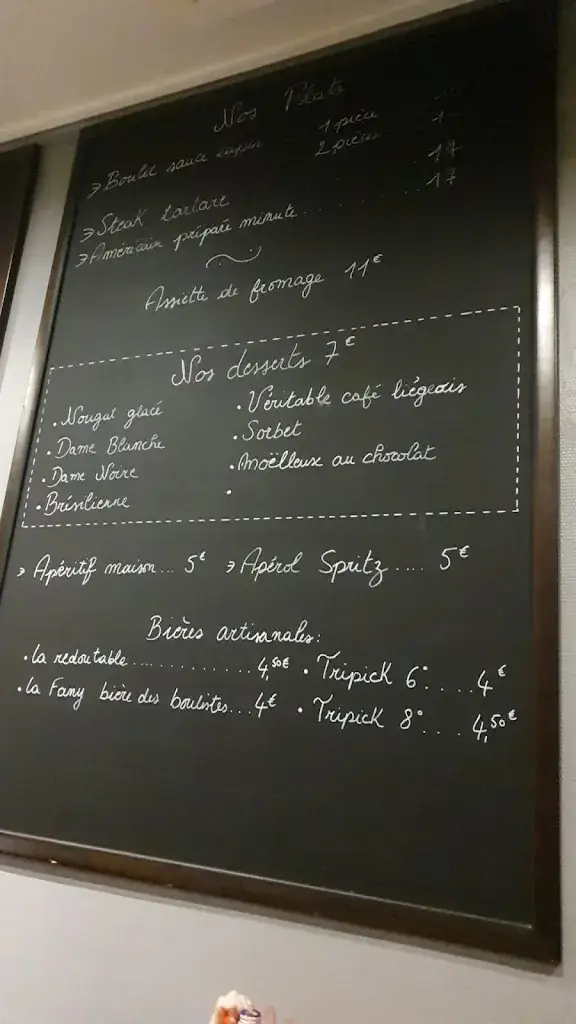 Nos Plats
→ Boulet sauce lapin 1 pièce
2 pièces
→ Steak tartare 17
→ Américain préparé minute.......... 17
Assiette de fromage 11€
Nos desserts 7€
• Nougat glacé
• Dame Blanche
• Dame Noire
• Brésilienne
• Véritable café liégeois
• Sorbet
• Moëlleux au chocolat
•
→ Apéritif maison... 5€ → Apérol Spritz.... 5€
Bières artisanales:
• la redoutable............. 4,50€ • Tripick 6°.... 4€
• la Fany bière des boulistes... 4€ • Tripick 8°... 4,50€